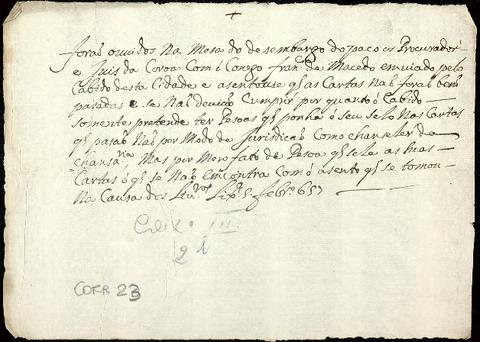 +
forão ouvidos Na Mesa do desembargo do paço os Procurador
e Juis da Coroa Com o Conego fran.co de Macedo enviado pelo
Cabido desta Cidade e asentouse q̃ as Cartas não forão bem
pasadas e se não devião Cumprir por quanto o Cabido
somente pretende ter Pesoas q̃ ponha o seu selo Nas Cartas
q̃ pasão Não por Modo de Jurisdicão Como chanseler da
chansa.ria, Mas por Mero fato de Pesoa q̃ sela as tais
Cartas o q̃ se Não encontra Com o asento q̃ se tomou
Na Causa dos L.x.ª 5 febr.o 657
Caix.
21
CORR 23